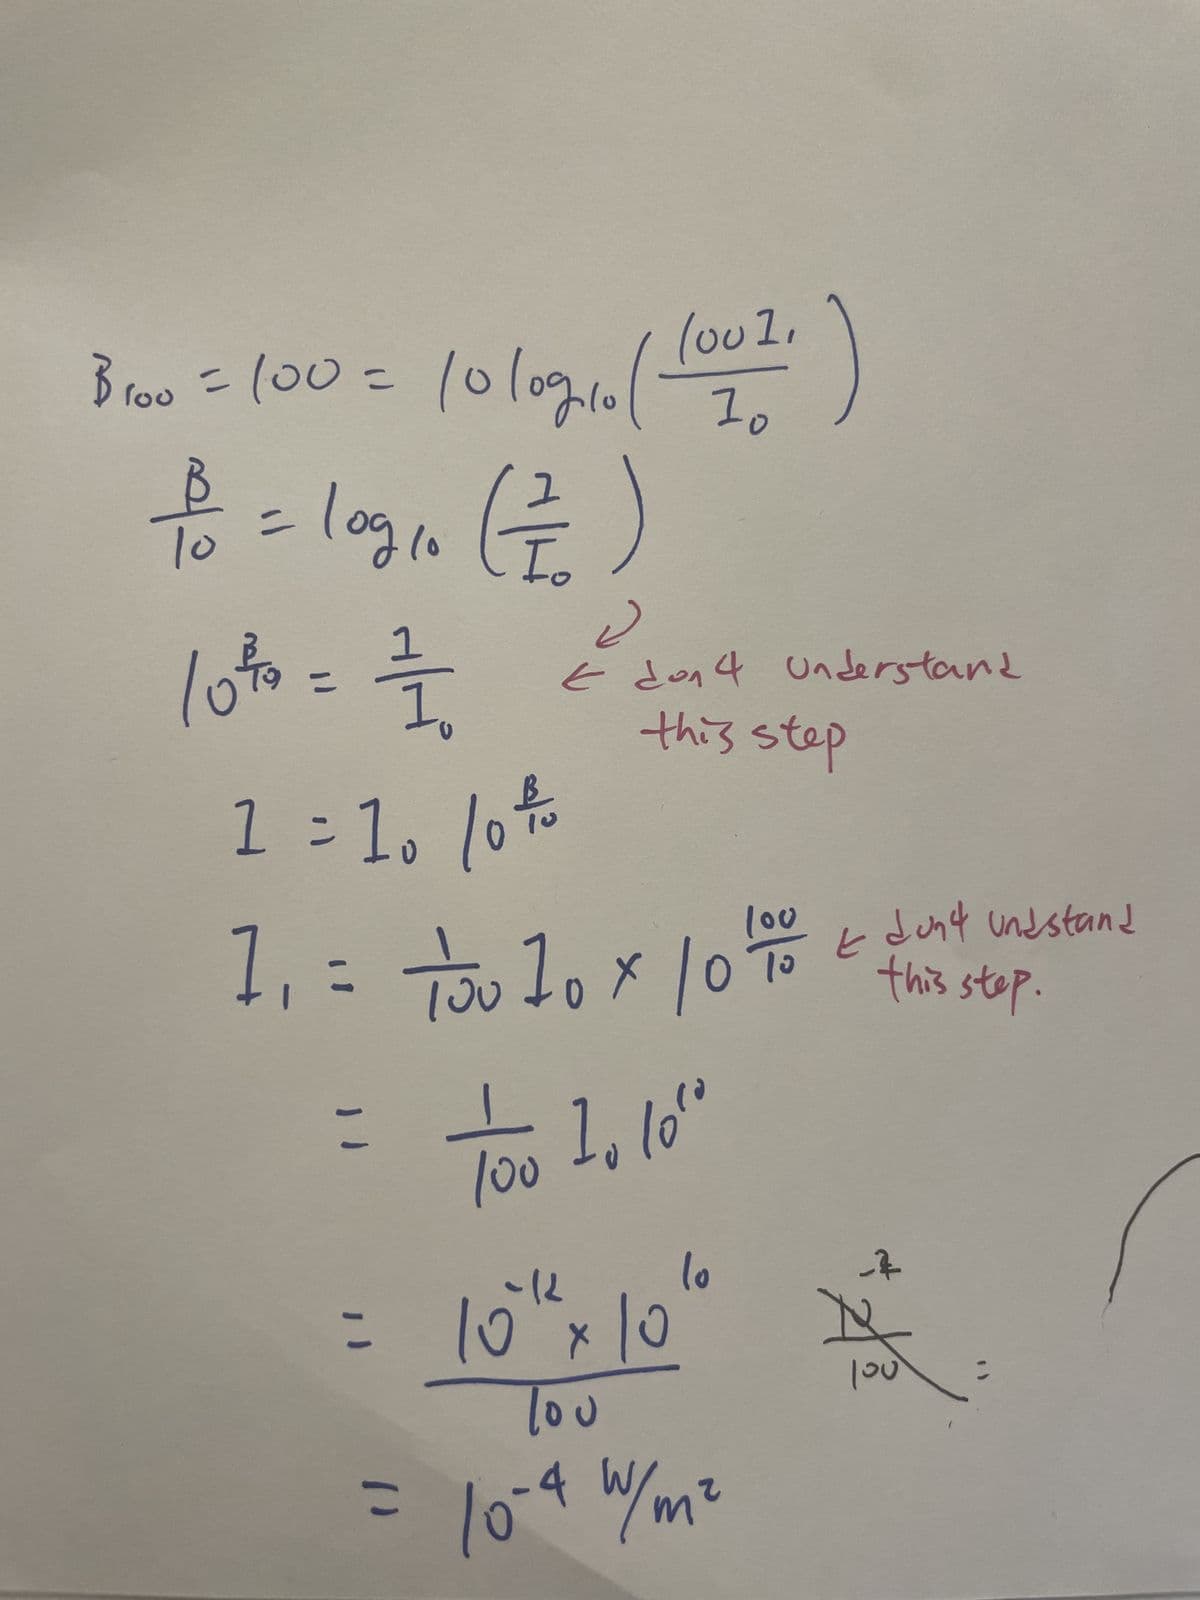 B₁₀₀ = 100 = 10 log₁₀ (100I₁/I₀)
B/10 = log₁₀ (I/I₀)
10^(B/10) = I/I₀ ← don4 understand
this step
I = I₀ 10^(B/10)
I₁ = 1/100 I₀ × 10^(100/10) ← don4 undstand
this step.
= 1/100 I₀ 10¹⁰
= 10⁻¹² × 10¹⁰ / 100
100 =
= 10⁻⁴ W/m²